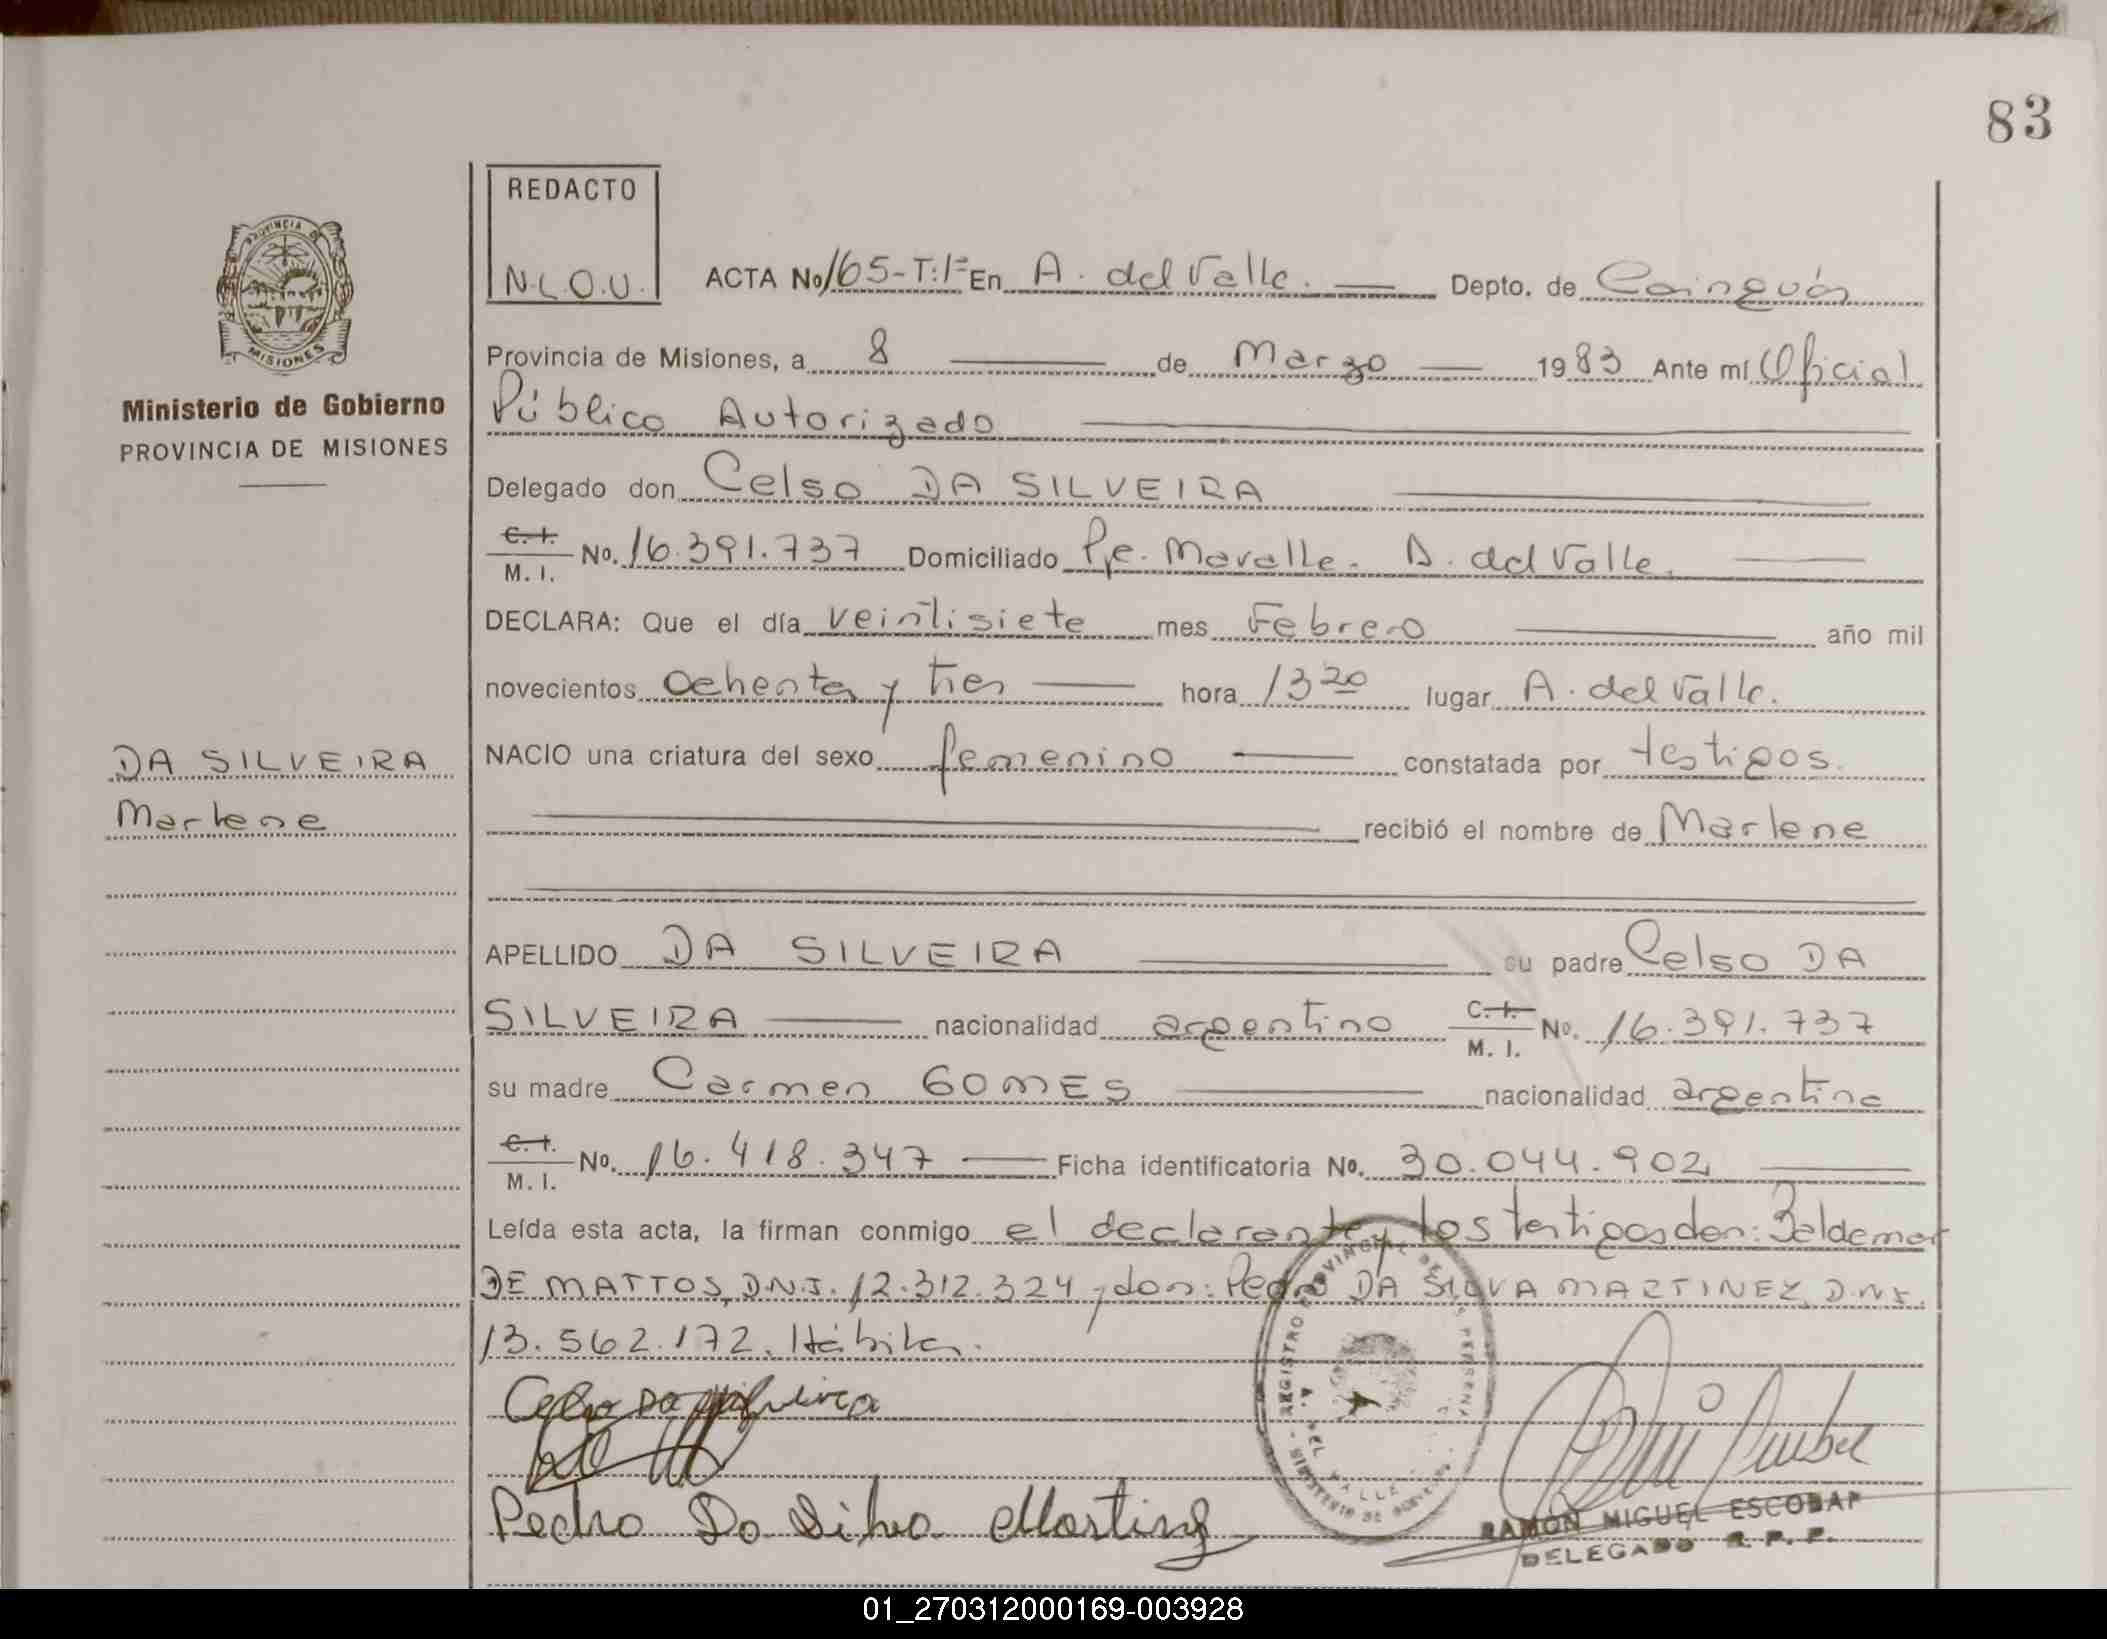 83
REDACTO
N.L.O.U.
PROVINCIA DE
MISIONES
Ministerio de Gobierno
PROVINCIA DE MISIONES
ACTA No 165-T:1º En A. del Valle. Depto. de Cainguás
Provincia de Misiones, a 8 de Marzo 1983 Ante mí Oficial
Público Autorizado
Delegado don Celso DA SILVEIRA
C. I. / M. I. No. 16.391.737 Domiciliado Pje. Mavalle. A. del Valle.
DECLARA: Que el día veintisiete mes Febrero año mil
novecientos ochenta y tres hora 13 20 lugar A. del Valle.
DA SILVEIRA
Marlene
NACIO una criatura del sexo femenino constatada por testigos.
recibió el nombre de Marlene
APELLIDO DA SILVEIRA su padre Celso DA
SILVEIRA nacionalidad argentino C. I. / M. I. No. 16.391.737
su madre Carmen GOMES nacionalidad argentina
C. I. / M. I. No. 16.418.347 Ficha identificatoria No. 30.044.902
Leída esta acta, la firman conmigo el declarante y los testigos don: Beldemar
DE MATTOS, D.N.I. 12.312.324 y don: Pedro DA SILVA MARTINEZ, D.N.I.
13.562.172. Hábiles.
Celso Da Silveira
Pedro Da Silva Martinez
REGISTRO PROVINCIAL DE LAS PERSONAS
A. DEL VALLE
MINISTERIO DE GOBIERNO
RAMÓN MIGUEL ESCOBAR
DELEGADO R. P. P.
01_270312000169-003928